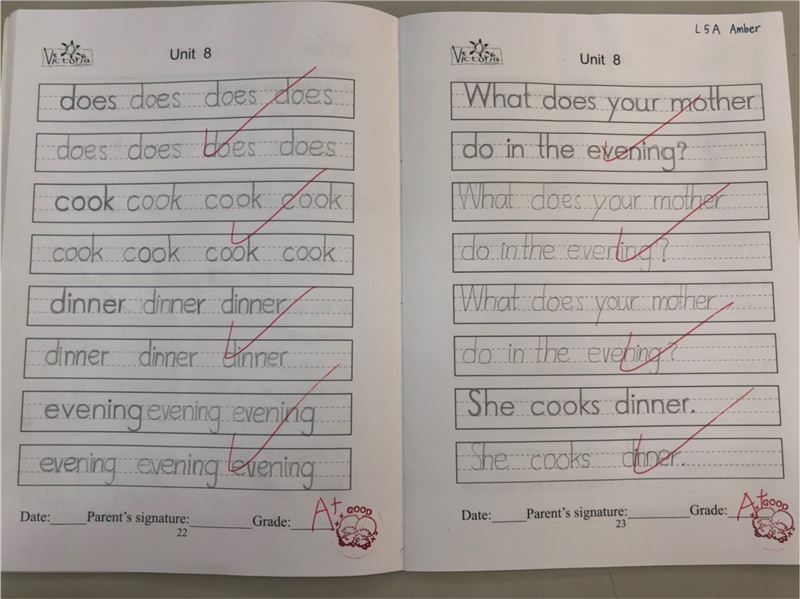 Victoria
Unit 8
does does does does
does does does does
cook cook cook cook
cook cook cook cook
dinner dinner dinner
dinner dinner dinner
evening evening evening
evening evening evening
Date:_____Parent's signature:________Grade:____A+
GOOD
22
L5A Amber
Victoria
Unit 8
What does your mother
do in the evening?
What does your mother
do in the evening?
What does your mother
do in the evening?
She cooks dinner.
She cooks dinner.
Date:_____Parent's signature:________Grade:____A+
GOOD
23